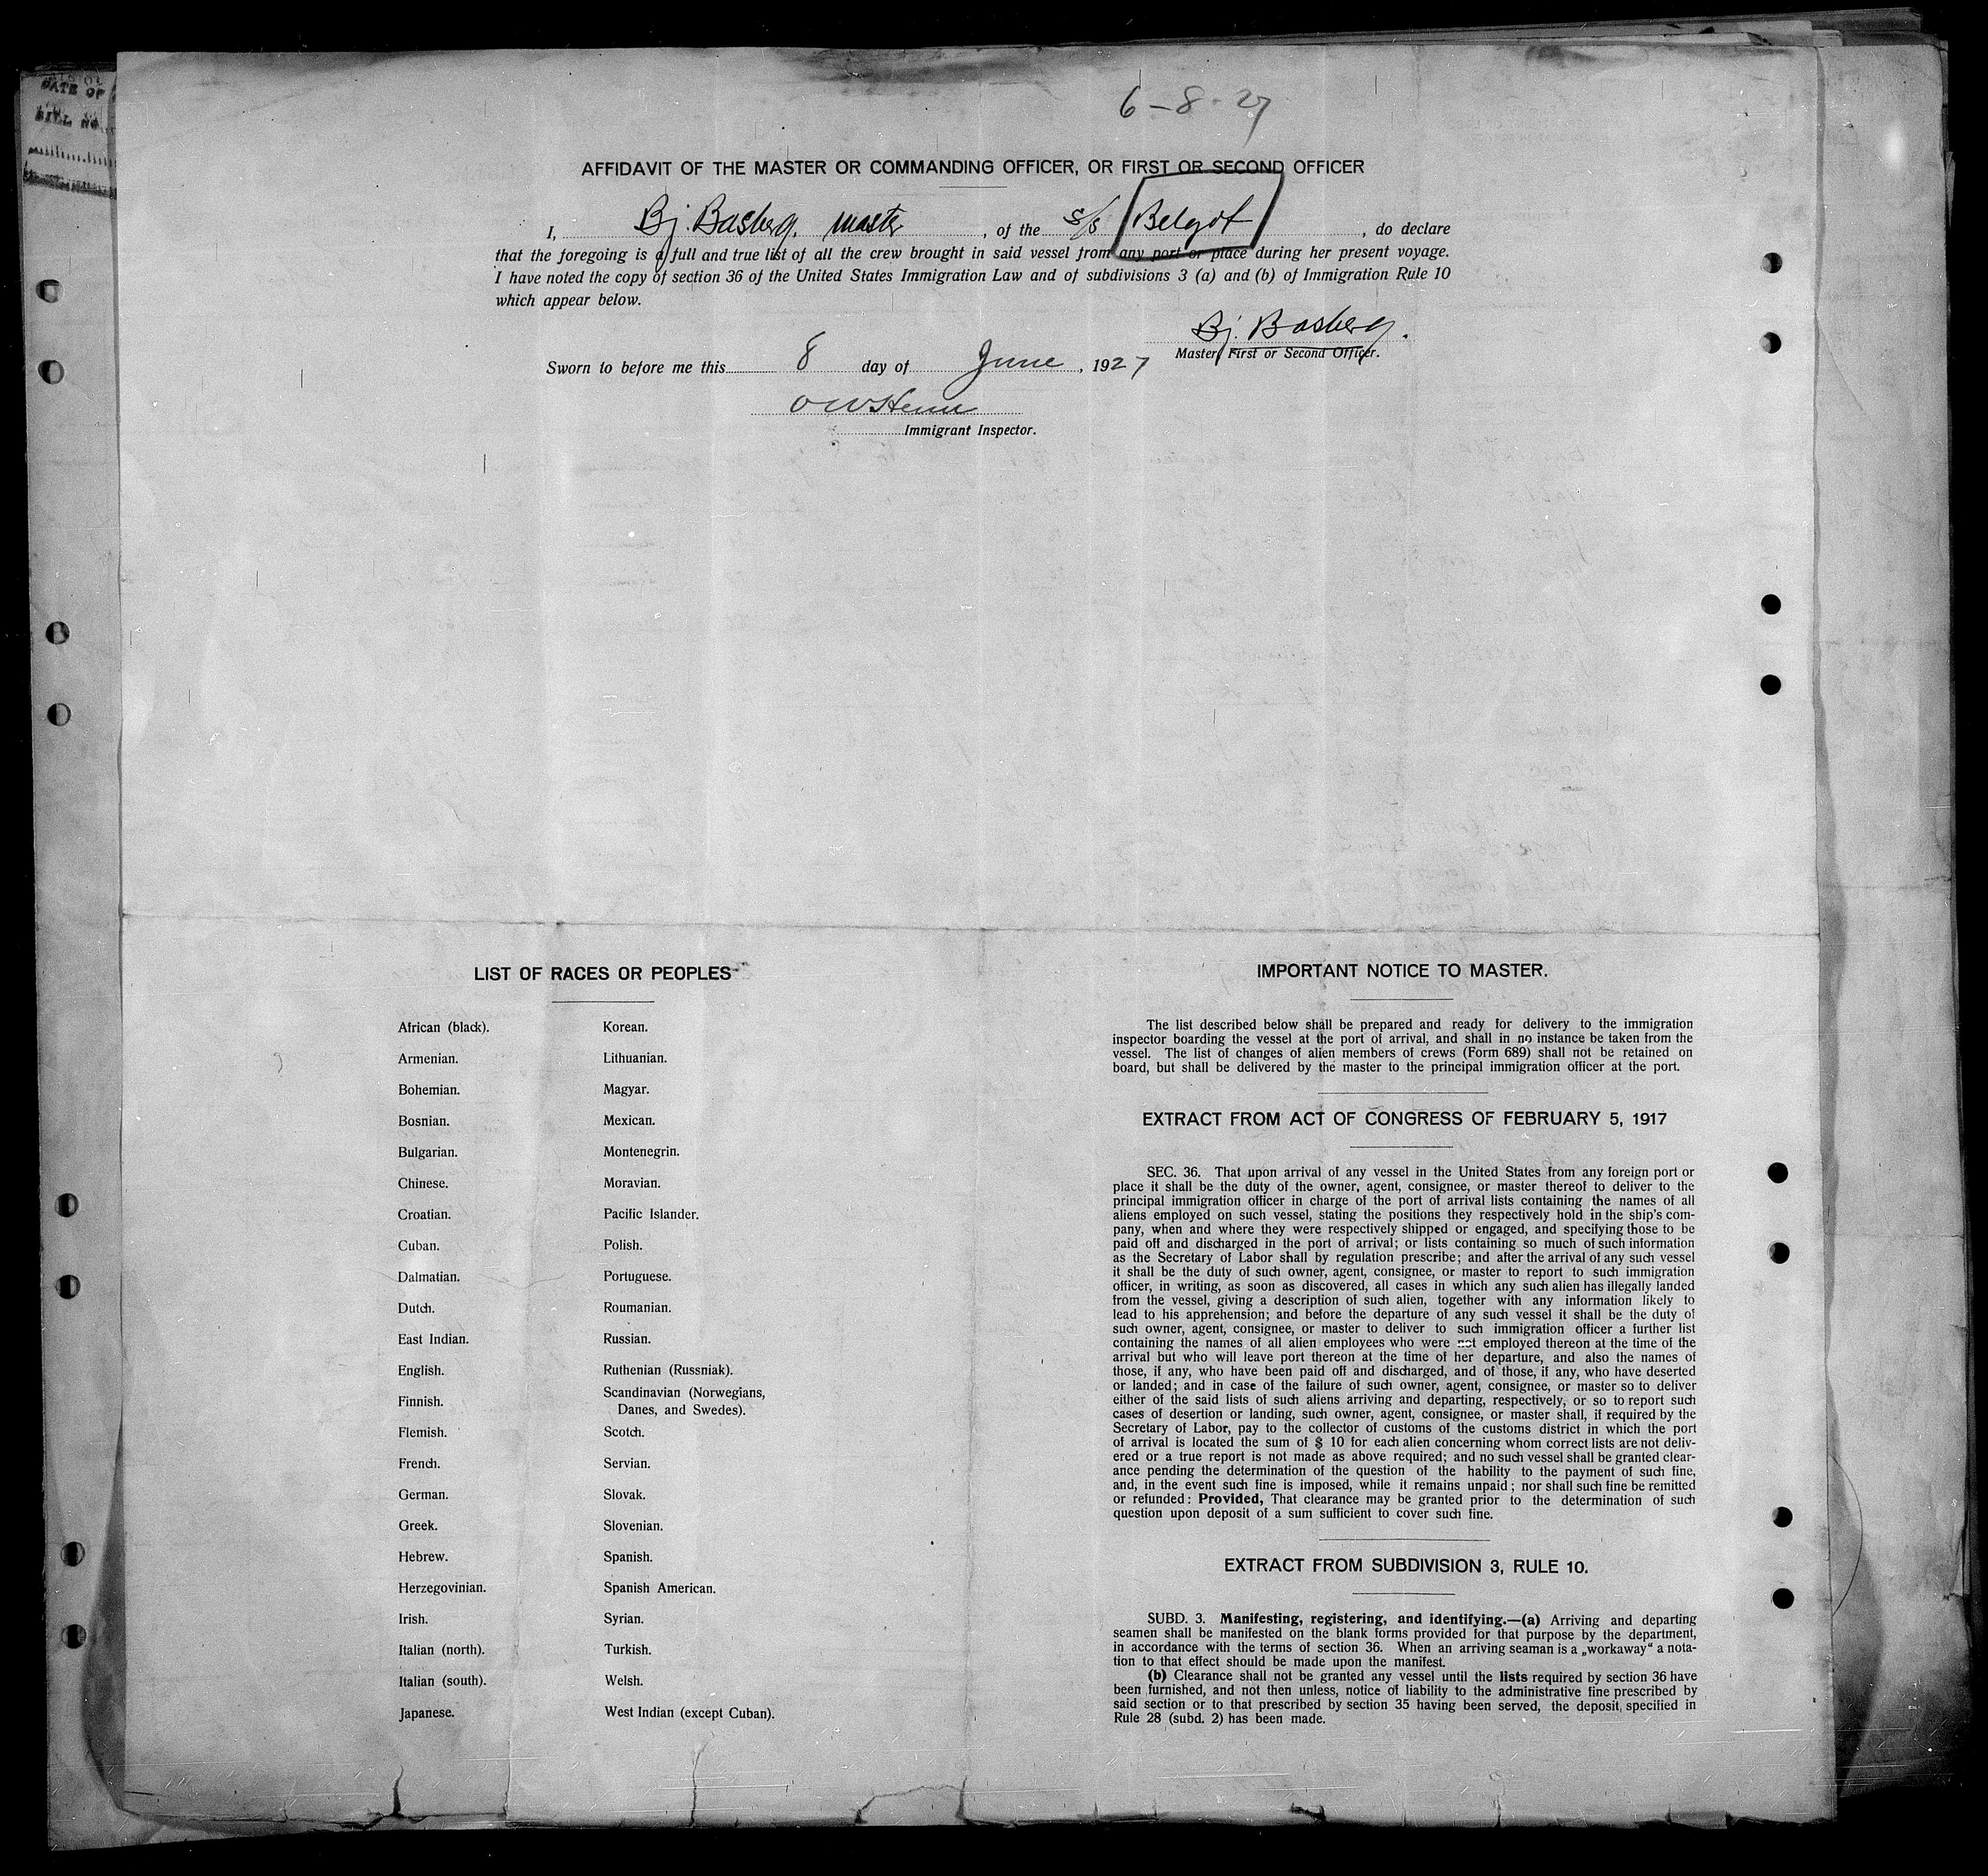 DATE OF
BILL NO.
6-8-27
AFFIDAVIT OF THE MASTER OR COMMANDING OFFICER, OR FIRST OR SECOND OFFICER
I, Bj. Basberg, master, of the s/s Belgot, do declare
that the foregoing is a full and true list of all the crew brought in said vessel from any port or place during her present voyage.
I have noted the copy of section 36 of the United States Immigration Law and of subdivisions 3 (a) and (b) of Immigration Rule 10
which appear below.
Bj. Basberg.
Master, First or Second Officer.
Sworn to before me this 8 day of June, 1927
Immigrant Inspector.
LIST OF RACES OR PEOPLES
African (black).
Armenian.
Bohemian.
Bosnian.
Bulgarian.
Chinese.
Croatian.
Cuban.
Dalmatian.
Dutch.
East Indian.
English.
Finnish.
Flemish.
French.
German.
Greek.
Hebrew.
Herzegovinian.
Irish.
Italian (north).
Italian (south).
Japanese.
Korean.
Lithuanian.
Magyar.
Mexican.
Montenegrin.
Moravian.
Pacific Islander.
Polish.
Portuguese.
Roumanian.
Russian.
Ruthenian (Russniak).
Scandinavian (Norwegians,
Danes, and Swedes).
Scotch.
Servian.
Slovak.
Slovenian.
Spanish.
Spanish American.
Syrian.
Turkish.
Welsh.
West Indian (except Cuban).
IMPORTANT NOTICE TO MASTER.
The list described below shall be prepared and ready for delivery to the immigration
inspector boarding the vessel at the port of arrival, and shall in no instance be taken from the
vessel. The list of changes of alien members of crews (Form 689) shall not be retained on
board, but shall be delivered by the master to the principal immigration officer at the port.
EXTRACT FROM ACT OF CONGRESS OF FEBRUARY 5, 1917
SEC. 36. That upon arrival of any vessel in the United States from any foreign port or
place it shall be the duty of the owner, agent, consignee, or master thereof to deliver to the
principal immigration officer in charge of the port of arrival lists containing the names of all
aliens employed on such vessel, stating the positions they respectively hold in the ship's com-
pany, when and where they were respectively shipped or engaged, and specifying those to be
paid off and discharged in the port of arrival; or lists containing so much of such information
as the Secretary of Labor shall by regulation prescribe; and after the arrival of any such vessel
it shall be the duty of such owner, agent, consignee, or master to report to such immigration
officer, in writing, as soon as discovered, all cases in which any such alien has illegally landed
from the vessel, giving a description of such alien, together with any information likely to
lead to his apprehension; and before the departure of any such vessel it shall be the duty of
such owner, agent, consignee, or master to deliver to such immigration officer a further list
containing the names of all alien employees who were not employed thereon at the time of the
arrival but who will leave port thereon at the time of her departure, and also the names of
those, if any, who have been paid off and discharged, and of those, if any, who have deserted
or landed; and in case of the failure of such owner, agent, consignee, or master so to deliver
either of the said lists of such aliens arriving and departing, respectively, or so to report such
cases of desertion or landing, such owner, agent, consignee, or master shall, if required by the
Secretary of Labor, pay to the collector of customs of the customs district in which the port
of arrival is located the sum of $ 10 for each alien concerning whom correct lists are not deliv-
ered or a true report is not made as above required; and no such vessel shall be granted clear-
ance pending the determination of the question of the hability to the payment of such fine,
and, in the event such fine is imposed, while it remains unpaid; nor shall such fine be remitted
or refunded: Provided, That clearance may be granted prior to the determination of such
question upon deposit of a sum sufficient to cover such fine.
EXTRACT FROM SUBDIVISION 3, RULE 10.
SUBD. 3. Manifesting, registering, and identifying.—(a) Arriving and departing
seamen shall be manifested on the blank forms provided for that purpose by the department,
in accordance with the terms of section 36. When an arriving seaman is a „workaway“ a nota-
tion to that effect should be made upon the manifest.
(b) Clearance shall not be granted any vessel until the lists required by section 36 have
been furnished, and not then unless, notice of liability to the administrative fine prescribed by
said section or to that prescribed by section 35 having been served, the deposit specified in
Rule 28 (subd. 2) has been made.